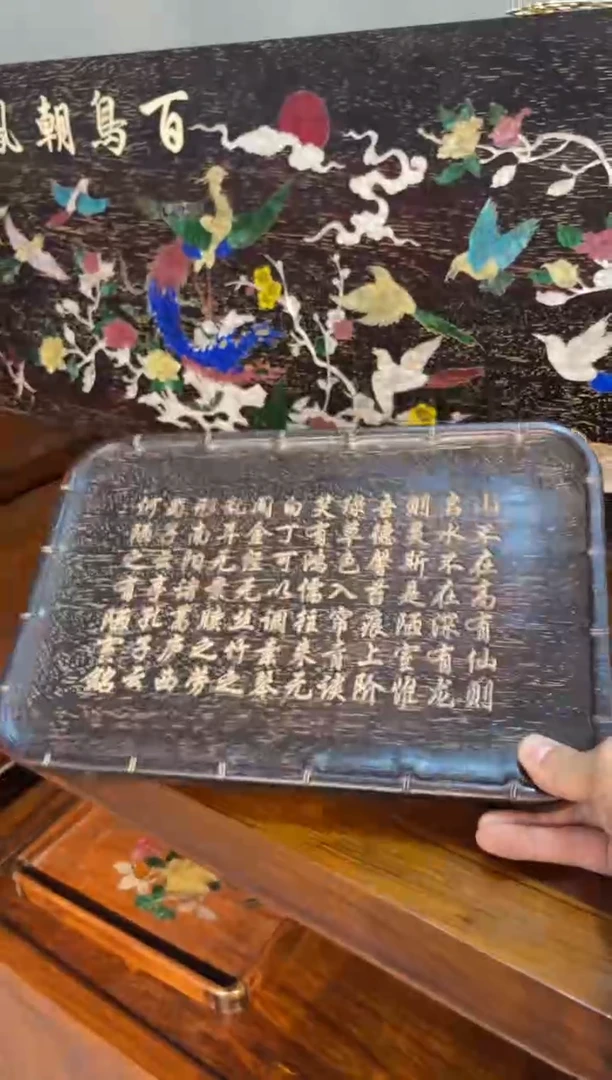 百鳥朝
山不在高有仙则
名水不在深有龙
则灵斯是陋室惟
吾德馨苔痕上阶
绿草色入帘青谈
笑有鸿儒往来无
白丁可以调素琴
阅金经无丝竹之
乱耳无案牍之劳
形南阳诸葛庐西
蜀子云亭孔子云
何陋之有陋室铭